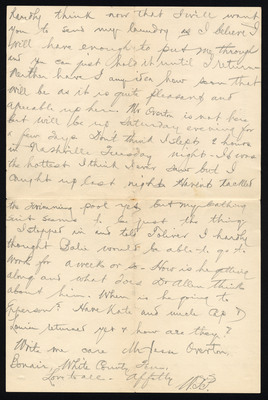 hardly think now that I will want
you to send my laundry as I believe I
will have enough to put me through
and you can just hold it until I return
Neither have I any idea how soon that
will be as it is quite pleasant and
agreeable up here. Mr Overton is not here
but will be up Saturday evening for
a few days. Don't think I slept 2 hours
in Nashville Tuesday night. It was
the hottest I think I ever saw but I
caught up last night. Haven't tackled
the swimming pool yet but my bathing
suit seems to be just the thing.
I stopped in and told Oliver I hardly
thought would be able to go to
work for a week or so. How is he getting
along and what does Dr Allen think
about him. When is he going to
Epperson? Have Kate and uncle
Louise returned yet & how are they?
Write me care Mr Jesse Overton
Bonair, White County, Tenn.
Love to all. Affctly